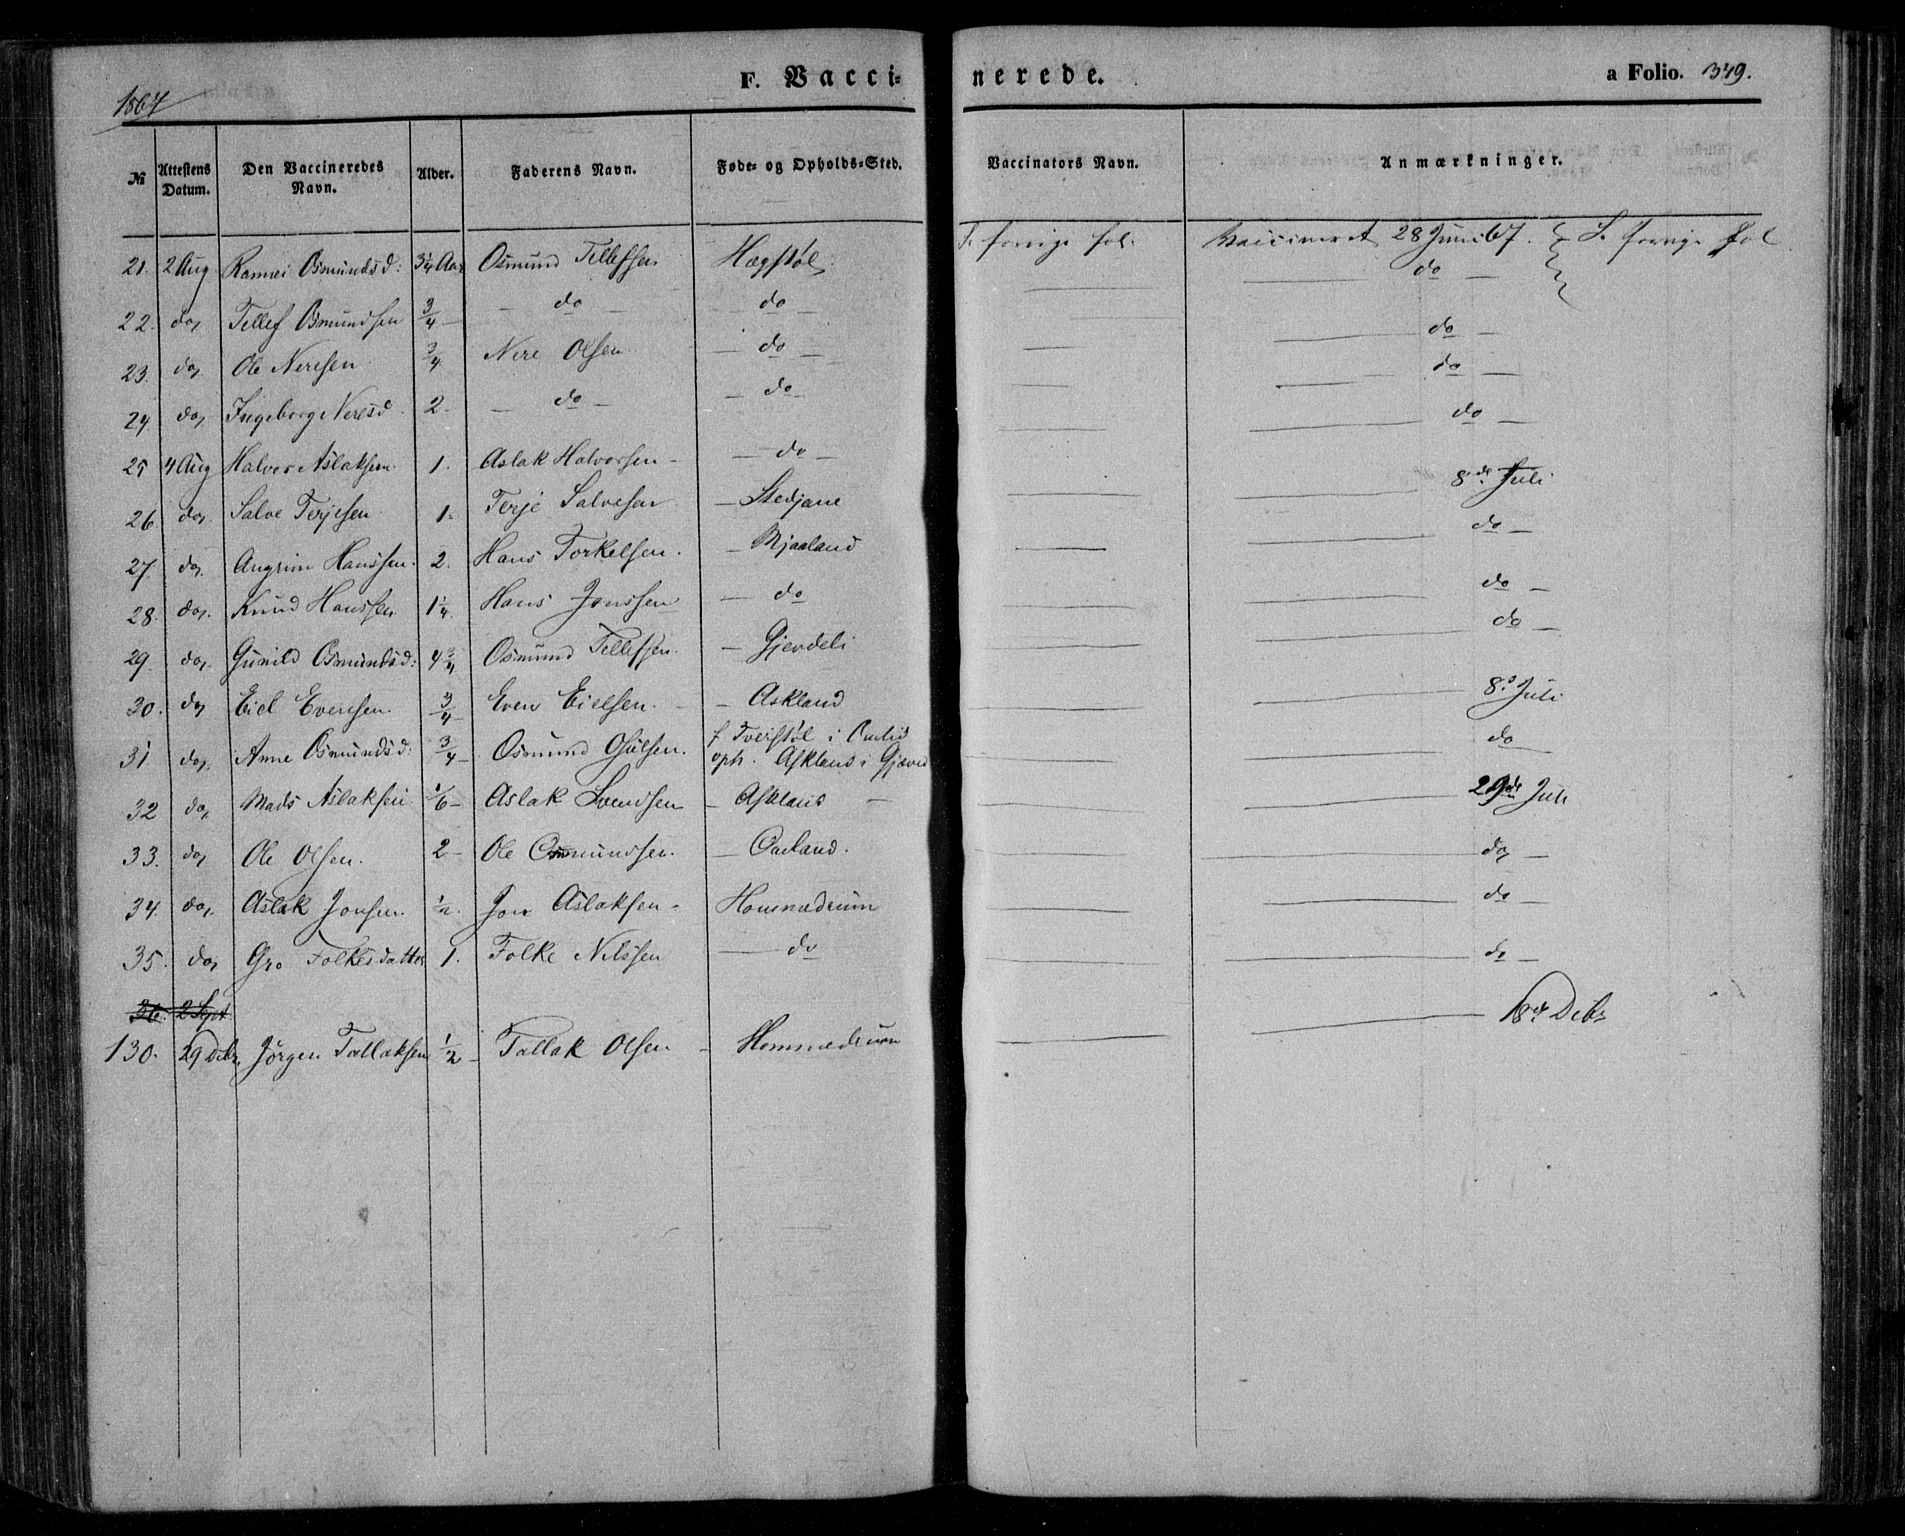 1867 F. Vaccinerede. a Folio. 349.
№ Attestens Datum. Den Vaccineredes Navn. Alder. Faderens Navn. Føde- og Opholds-Sted. Vaccinators Navn. Anmærkninger.
21. 2 Aug Osmundsd: 3 1/4 Aar Osmund Tellefsen Hægstøl S. forrige fol. Vaccineret 28 Juni 67. S. forrige fol
22. do, Tellef Osmundsen 3/4 – do – – do – do –
23. do, Ole Neresen 3/4 Nere Olsen – do – do –
24 do, Ingeborg Neresd. 2 – – do – – do – do –
25 4 Aug Halvor Aslaksen. 1. Aslak Halvorsen – – do – do –
26. do, Salve Terjesen 1. Terje Salvesen – Stedjane 8de Juli
27. do, Angrim Hanssen. 2. Hans Torkelsen. – Mjaaland do –
28. do, Knud Hanssen 1 1/4. Hans Jonssen – do do –
29. do, Gunild Osmundsd: 4 3/4 Osmund Tellefsen. – Gjerdeli do –
30. do, Eiel Evensen. 3/4 – Even Eielsen. – – Askland 8de Juli
31 do, Anne Osmundsd: 3/4 – Osmund Osulsen. f Tveistøl i
oph. Askland i do
32 do, Mads Aslaksen 1/6 – Aslak Svendsen – Askland – 29de Juli
33. do, Ole Olsen. 2 – Ole Osmundsen. – do, –
34. do, Aslak Jonsen. 1/2. Jon Aslaksen – Hommedrum do –
35. do, Gro Folkesdatter 1. Folke Nilssen – do do –
36. 2 Sept
130. 29 Debr, Jørgen Tallaksen 1/2 – Tallak Olsen – Hommedrum 18de Debr